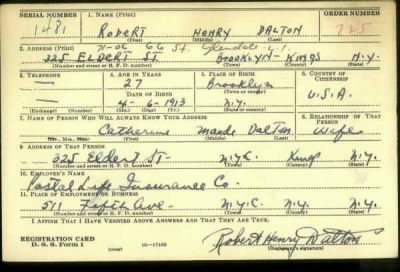 SERIAL NUMBER 1. NAME (Print) ORDER NUMBER
1481 ROBERT HENRY DALTON 725
(First) (Middle) (Last)
71-06 66 St. Glendale L.I.
2. ADDRESS (Print)
325 ELDERT ST. BROOKLYN- KINGS N.Y.
(Number and street or R. F. D. number) (Town) (County) (State)
3. TELEPHONE 4. AGE IN YEARS 5. PLACE OF BIRTH 6. COUNTRY OF CITIZENSHIP
— 27 Brooklyn
DATE OF BIRTH (Town or county) U.S.A.
— 4-6-1913 N.Y.
(Exchange) (Number) (Mo.) (Day) (Yr.) (State or country)
7. NAME OF PERSON WHO WILL ALWAYS KNOW YOUR ADDRESS 8. RELATIONSHIP OF THAT PERSON
Catherine Maude Dalton Wife
(Mr., Mrs., Miss) (First) (Middle) (Last)
9. ADDRESS OF THAT PERSON
325 Eldert St- N.Y.C. Kings N.Y.
(Number and street or R. F. D. number) (Town) (County) (State)
10. EMPLOYER'S NAME
Postal Life Insurance Co.
11. PLACE OF EMPLOYMENT OR BUSINESS
511 Fifth Ave- N.Y.C. N.Y.
(Number and street or R. F. D. number) (Town) (County) (State)
I AFFIRM THAT I HAVE VERIFIED ABOVE ANSWERS AND THAT THEY ARE TRUE.
REGISTRATION CARD
D. S. S. Form 1 16—17105 Robert Henry Dalton
(Registrant's signature)